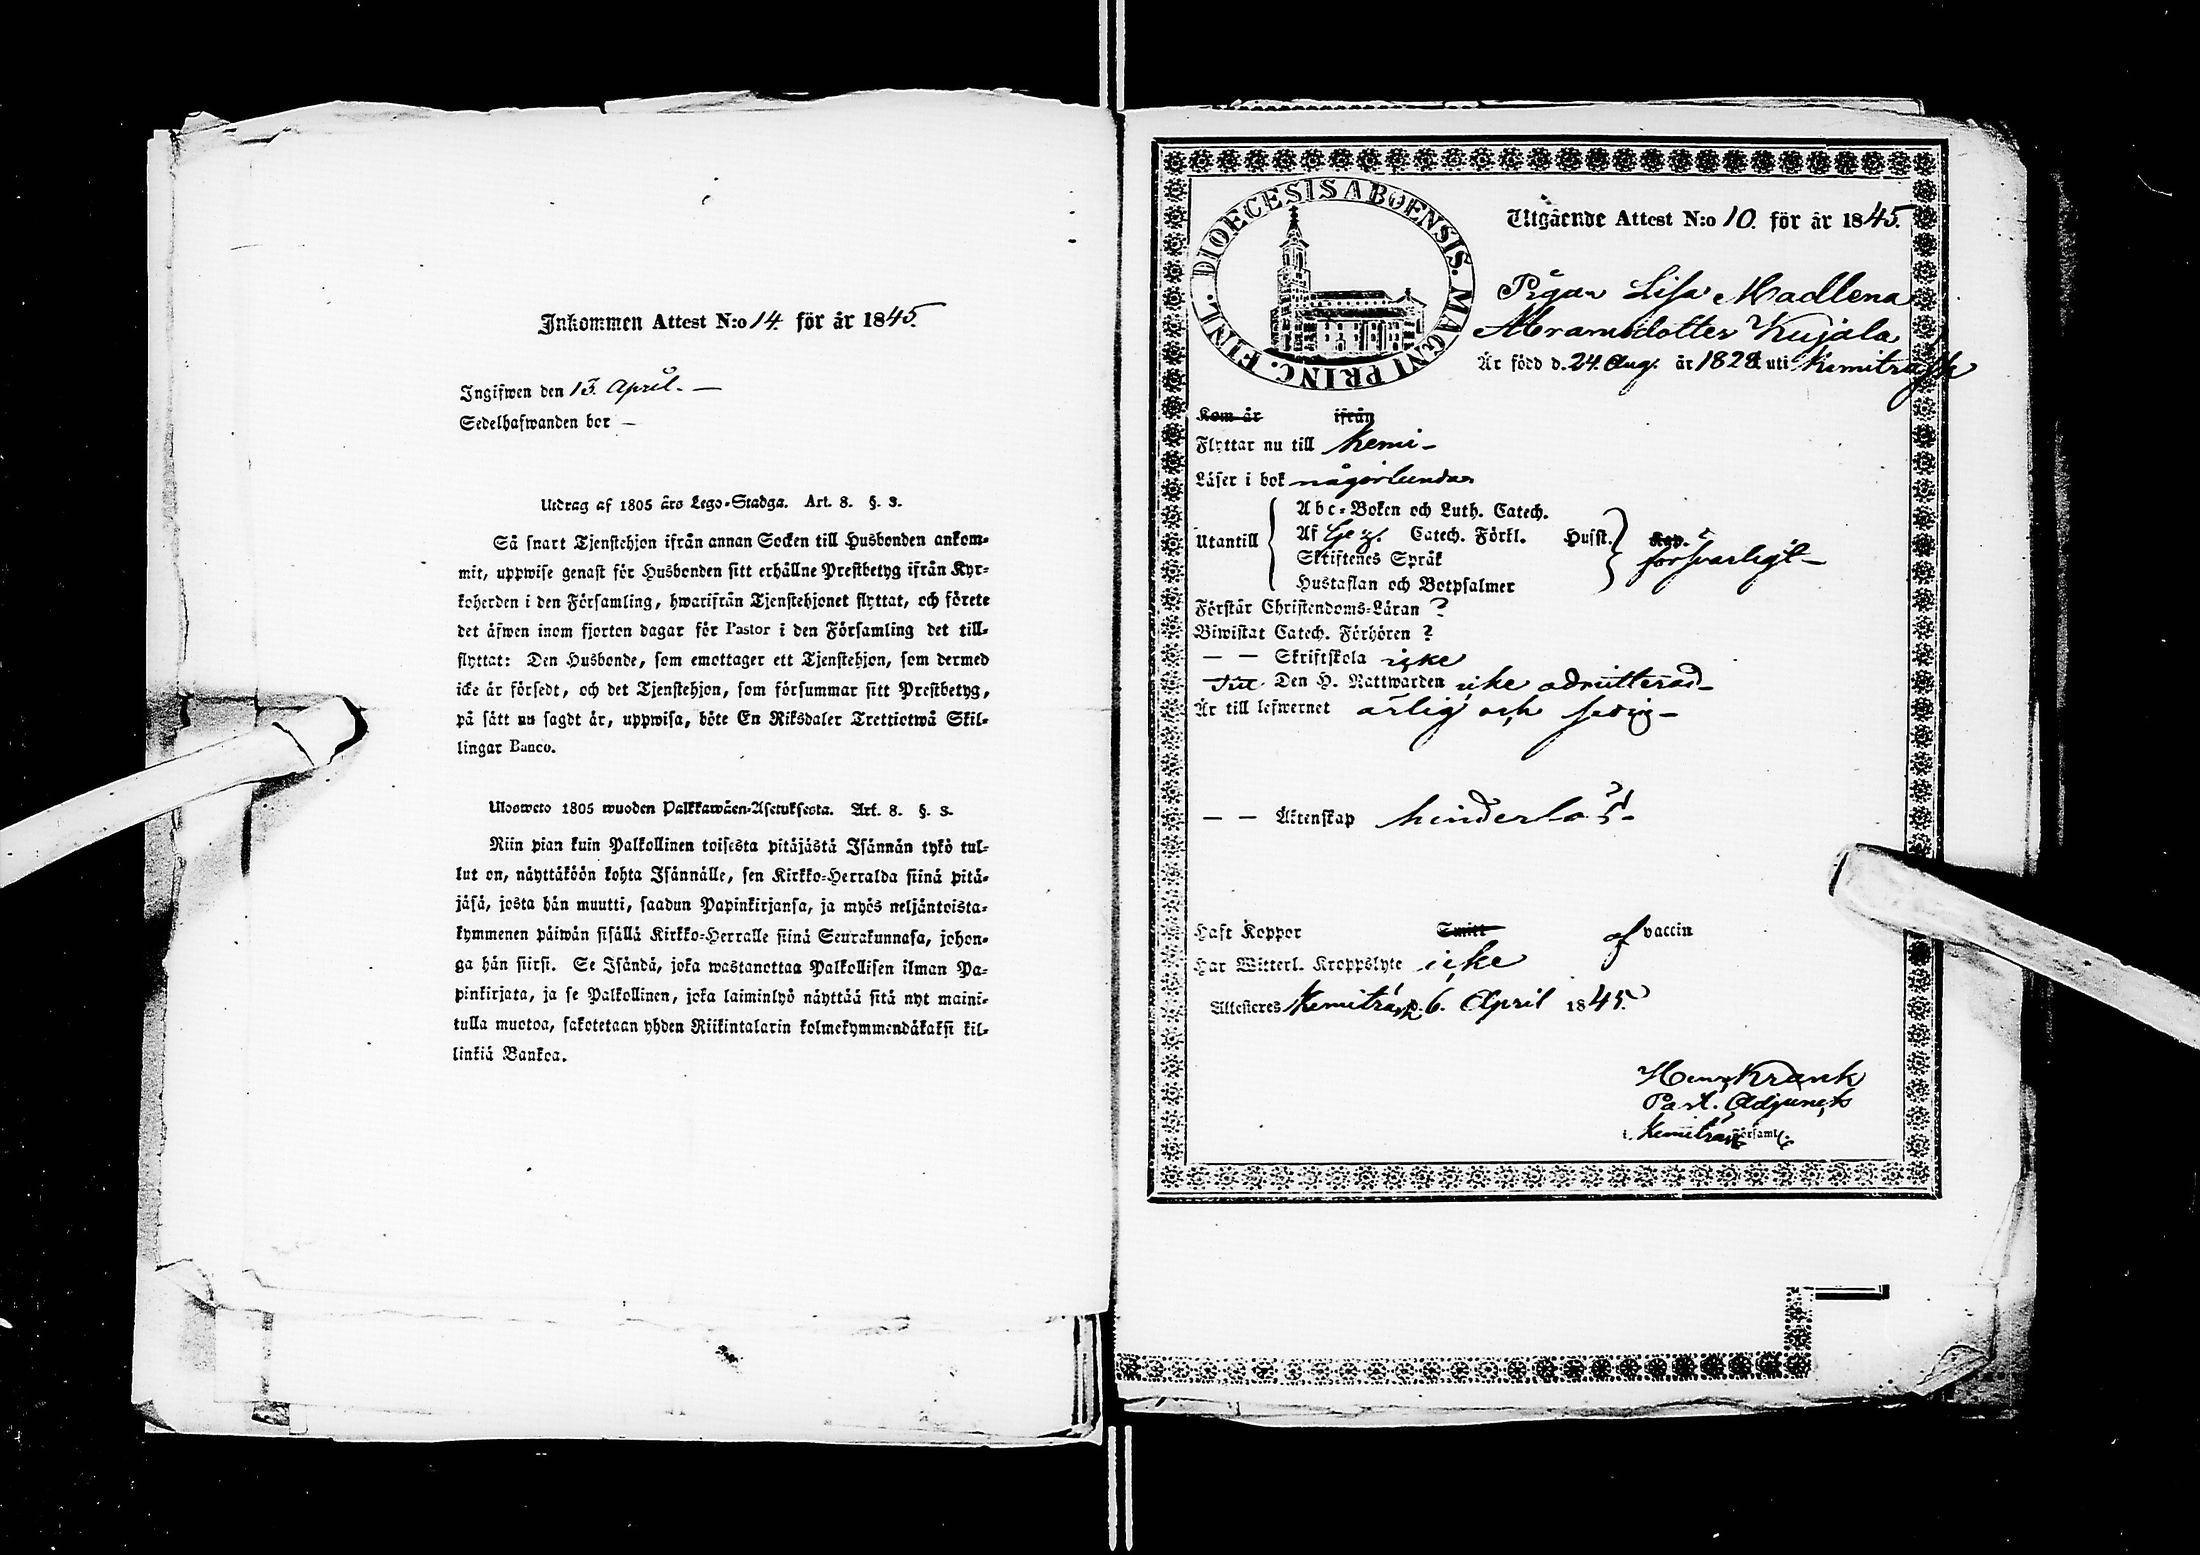 Inkommen Attest N:o 14. för år 1845.
Ingifwen den 13. April. —
Sedelhafwanden bor —
Utdrag af 1805 års Lego-Stadga. Art. 8. §. 3.
Så snart Tjenstehjon ifrån annan Socken till Husbonden ankom-
mit, uppwise genast för Husbonden sitt erhållne Prestbetyg ifrån Kyr-
koherden i den Församling, hwarifrån Tjenstehjonet flyttat, och förete
det äfwen inom fjorton dagar för Pastor i den Församling det till-
flyttat: Den Husbonde, som emottager ett Tjenstehjon, som dermed
icke är försedt, och det Tjenstehjon, som försummar sitt Prestbetyg,
på sätt nu sagdt är, uppwisa, böte En Riksdaler Trettiotwå Skil-
lingar Banco.
Ulosweto 1805 wuoden Palkkawäen-Asetuksesta. Art. 8. §. 3.
Niin pian kuin Palkollinen toisesta pitäjästä Isännän tykö tul-
lut on, näyttäköön kohta Isännälle, sen Kirkko-Herralda siinä pitä-
jäsä, josta hän muutti, saadun Papinkirjansa, ja myös neljäntoista-
kymmenen päiwän sisällä Kirkko-Herralle siinä Seurakunnasa, johon-
ga hän siirsi. Se Isändä, joka wastanottaa Palkollisen ilman Pa-
pinkirjata, ja se Palkollinen, joka laiminlyö näyttää sitä nyt maini-
tulla muotoa, sakotetaan yhden Riikintalarin kolmekymmendäkaksi kil-
linkiä Bankoa.
DIOECESIS ABOENSIS. MAGNI PRINC. FINL.
Utgående Attest N:o 10. för år 1845.
Pigan Lisa Madlena
Abramsdotter Kujala
Är född d. 24. Aug. år 1828 uti Kemiträsk
Kom år ifrån
Flyttar nu till Kemi —
Läser i bok någorlunda
Utantill
Abc-Boken och Luth. Catech.
Af Catech. Förkl. Husst.
Skriftenes Språk
Hustaflan och Botpsalmer
försvarligt —
Förstår Christendoms-Läran ?
Biwistat Catech. Förhören ?
— — Skriftskola icke
Den H. Nattwarden icke admitterad —
Är till lefwernet ärlig och sedig —
— — Äktenskap hinderlös. —
Haft Koppor Smitt af vaccin
Har Witterl. Kroppslyte icke
Attesteres Kemiträsk 6. April 1845.
Henr. Krank
Past. Adjunct
i Kemiträsk Församl.